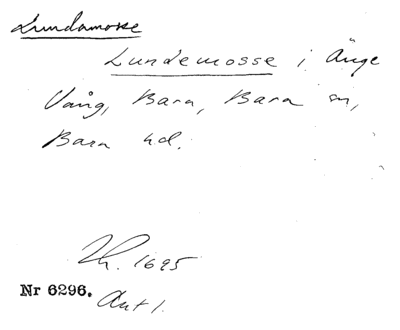 Lundamosse
Lundemosse i Änge
Vång, Bara, Bara sn,
Bara hd.
Lh. 1695
Nr 6296.
Ant 1.